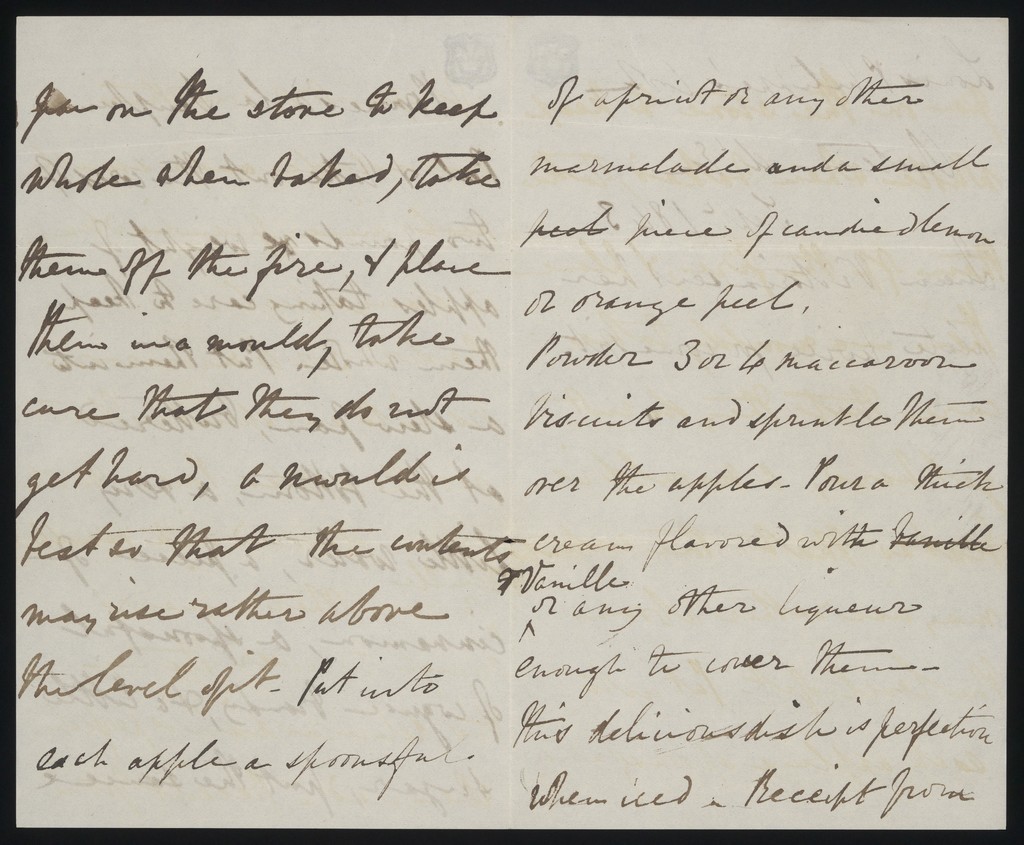 pan on the stove to keep
whole when baked, take
them off the fire, & place
them in a mould, take
care that they do not
get hard, a mould is
best so that the contents
may rise rather above
the level of it - Put into
each apple a spoonsful
of apricot or any other
marmalade and a small
peel piece of candied lemon
or orange peel.
Powder 3 or 4 maccaroon
biscuits and sprinkle them
over the apples - Pour a thick
cream flavored with Vanille
& Vanille
or any other liqueur
enough to cover them -
This delicious dish is perfection
when iced - Receipt from